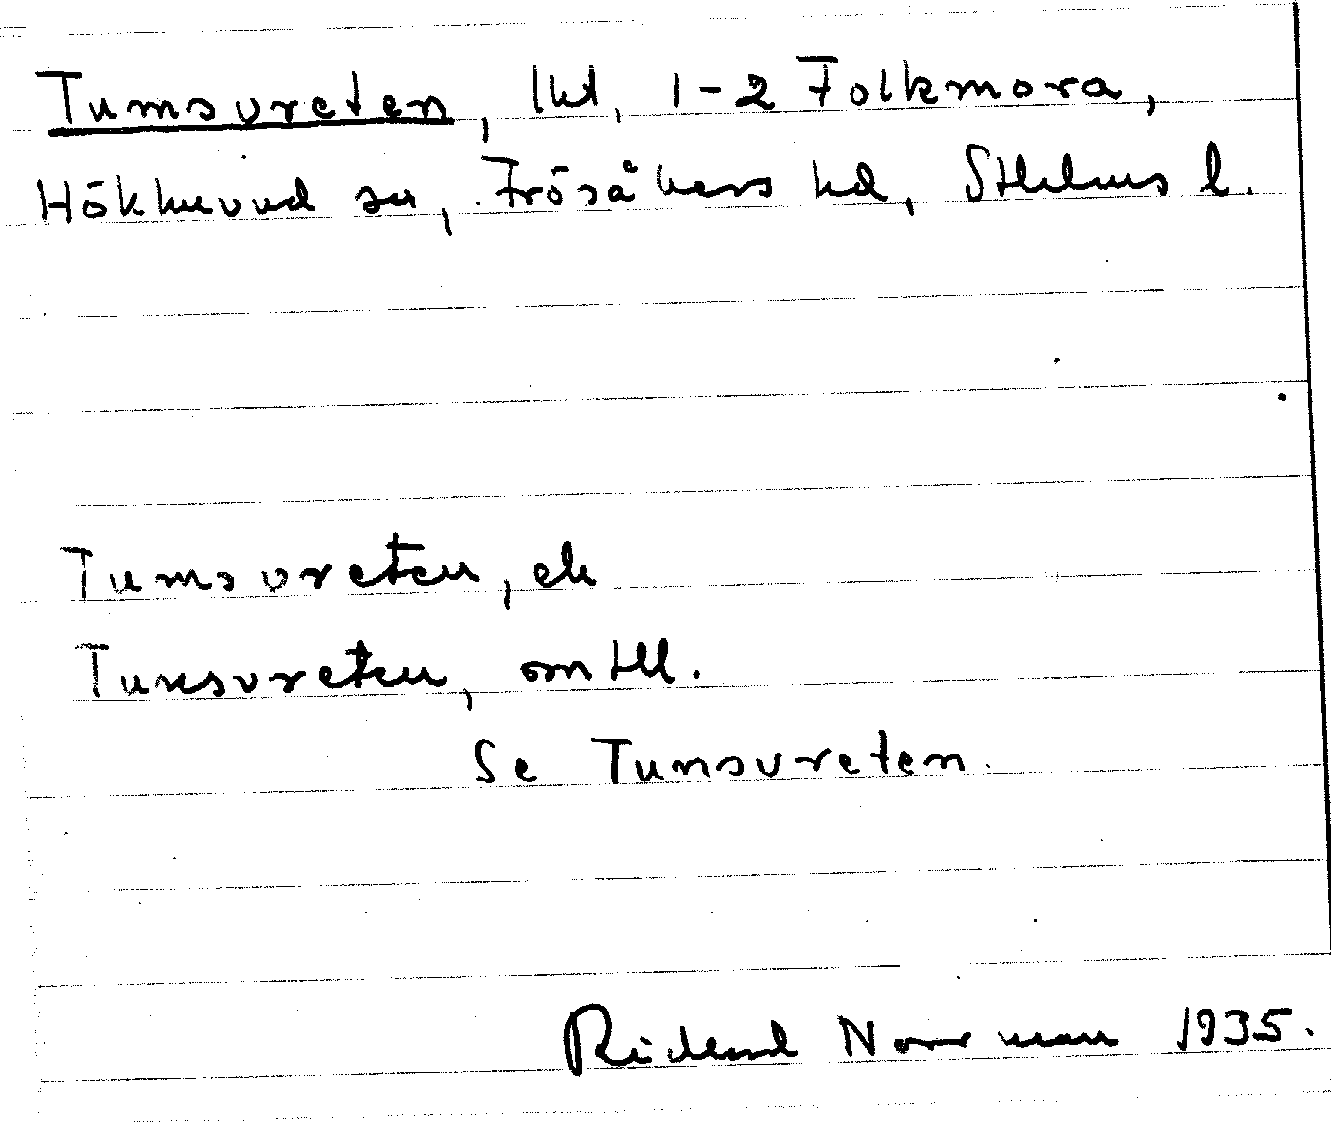 Tumsvreten, lht, 1-2 Folkmora,
Hökhuvud sn, Frösåkers hd, Sthlms l.
Tumsvreten, el
Tunsvreten, omtll.
Se Tunsvreten.
Richard Norrman 1935.